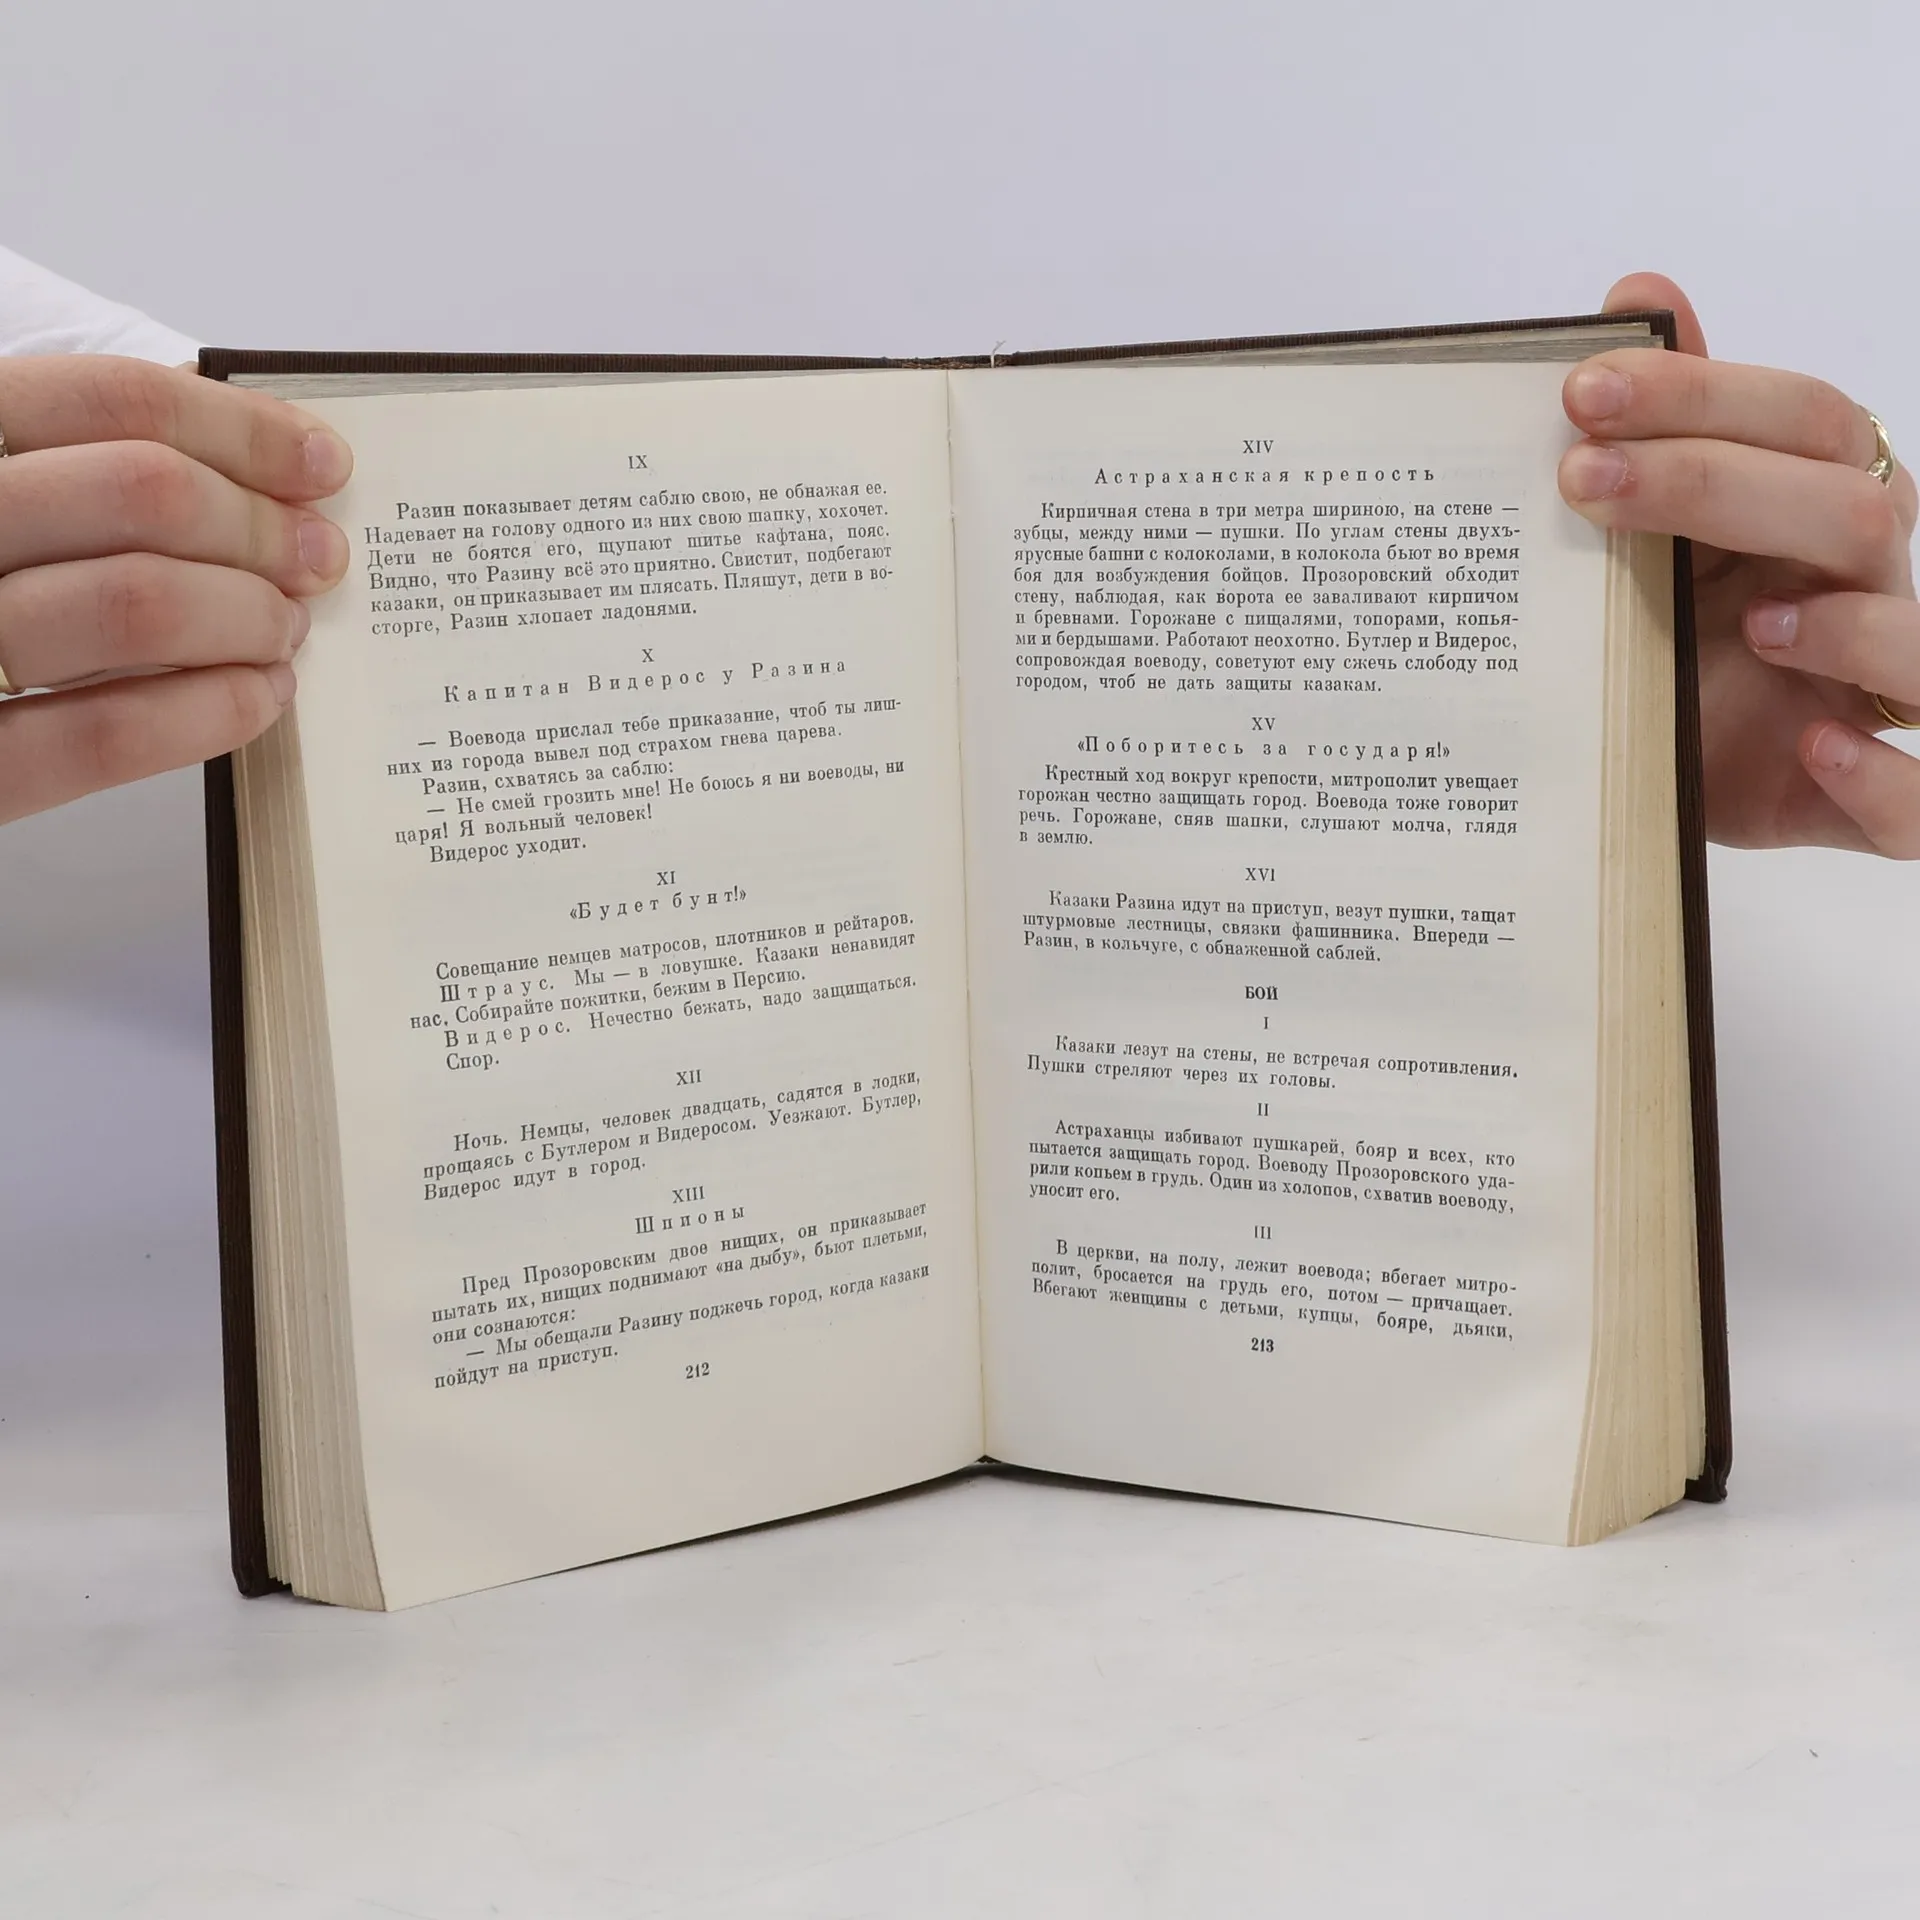 IX
Разин показывает детям саблю свою, не обнажая ее.
Надевает на голову одного из них свою шапку, хохочет.
Дети не боятся его, щупают шитье кафтана, пояс.
Видно, что Разину всё это приятно. Свистит, подбегают
казаки, он приказывает им плясать. Пляшут, дети в во-
сторге, Разин хлопает ладонями.
X
Капитан Видерос у Разина
— Воевода прислал тебе приказание, чтоб ты лиш-
них из города вывел под страхом гнева царева.
Разин, схватясь за саблю:
— Не смей грозить мне! Не боюсь я ни воеводы, ни
царя! Я вольный человек!
Видерос уходит.
XI
«Будет бунт!»
Совещание немцев матросов, плотников и рейтаров.
Штраус. Мы — в ловушке. Казаки ненавидят
нас. Собирайте пожитки, бежим в Персию.
Видерос. Нечестно бежать, надо защищаться.
Спор.
XII
Ночь. Немцы, человек двадцать, садятся в лодки,
прощаясь с Бутлером и Видеросом. Уезжают. Бутлер,
Видерос идут в город.
XIII
Шпионы
Пред Прозоровским двое нищих, он приказывает
пытать их, нищих поднимают «на дыбу», бьют плетьми,
они сознаются:
— Мы обещали Разину поджечь город, когда казаки
пойдут на приступ.
212
XIV
Астраханская крепость
Кирпичная стена в три метра шириною, на стене —
зубцы, между ними — пушки. По углам стены двухъ-
ярусные башни с колоколами, в колокола бьют во время
боя для возбуждения бойцов. Прозоровский обходит
стену, наблюдая, как ворота ее заваливают кирпичом
и бревнами. Горожане с пищалями, топорами, копья-
ми и бердышами. Работают неохотно. Бутлер и Видерос,
сопровождая воеводу, советуют ему сжечь слободу под
городом, чтоб не дать защиты казакам.
XV
«Поборитесь за государя!»
Крестный ход вокруг крепости, митрополит увещает
горожан честно защищать город. Воевода тоже говорит
речь. Горожане, сняв шапки, слушают молча, глядя
в землю.
XVI
Казаки Разина идут на приступ, везут пушки, тащат
штурмовые лестницы, связки фашинника. Впереди —
Разин, в кольчуге, с обнаженной саблей.
БОЙ
I
Казаки лезут на стены, не встречая сопротивления.
Пушки стреляют через их головы.
II
Астраханцы избивают пушкарей, бояр и всех, кто
пытается защищать город. Воеводу Прозоровского уда-
рили копьем в грудь. Один из холопов, схватив воеводу,
уносит его.
III
В церкви, на полу, лежит воевода; вбегает митро-
полит, бросается на грудь его, потом — причащает.
Вбегают женщины с детьми, купцы, бояре, дьяки,
213